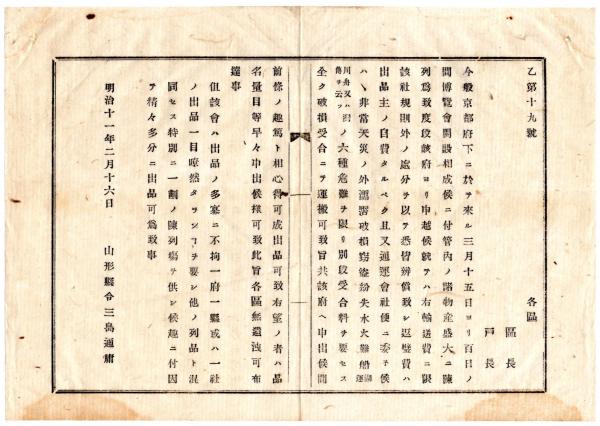 乙第十九號
各區
區長
戸長
今般京都府下ニ於テ來ル三月十五日ヨリ百日ノ
間博覽會開設相成候ニ付管內ノ諸物産盛大ニ陳
列爲致度段該府ヨリ申越候就テハ右輸送費ニ限
該社規則外ノ處分ヲ以テ悉皆辨償致シ返璧費ハ
出品主ノ自費タルベク且又通運會社便ニ委子候
ハヽ非常天災ノ外濡霑破損竊盜紛失水火難船
川舟又ハ湖
舊ヲ云フノ六種危難ヲ限リ別段受合料ヲ要セス
全ク破損受合ニテ運搬可致旨共該府ヘ申出候間
前條ノ趣篤ト相心得可成出品可致右望ノ者ハ品
名量目等早々申出候樣可致此旨各區無遺洩可布
達事
但該會ハ出品ノ多寡ニ不拘一府一縣或ハ一社
ノ出品一目瞭然タランコヲ要シ他ノ列品ト混
同セス特別ニ一割ノ陳列場ヲ供シ候趣ニ付因
テ精々多分ニ出品可爲致事
明治十一年二月十六日
山形縣令三島通庸